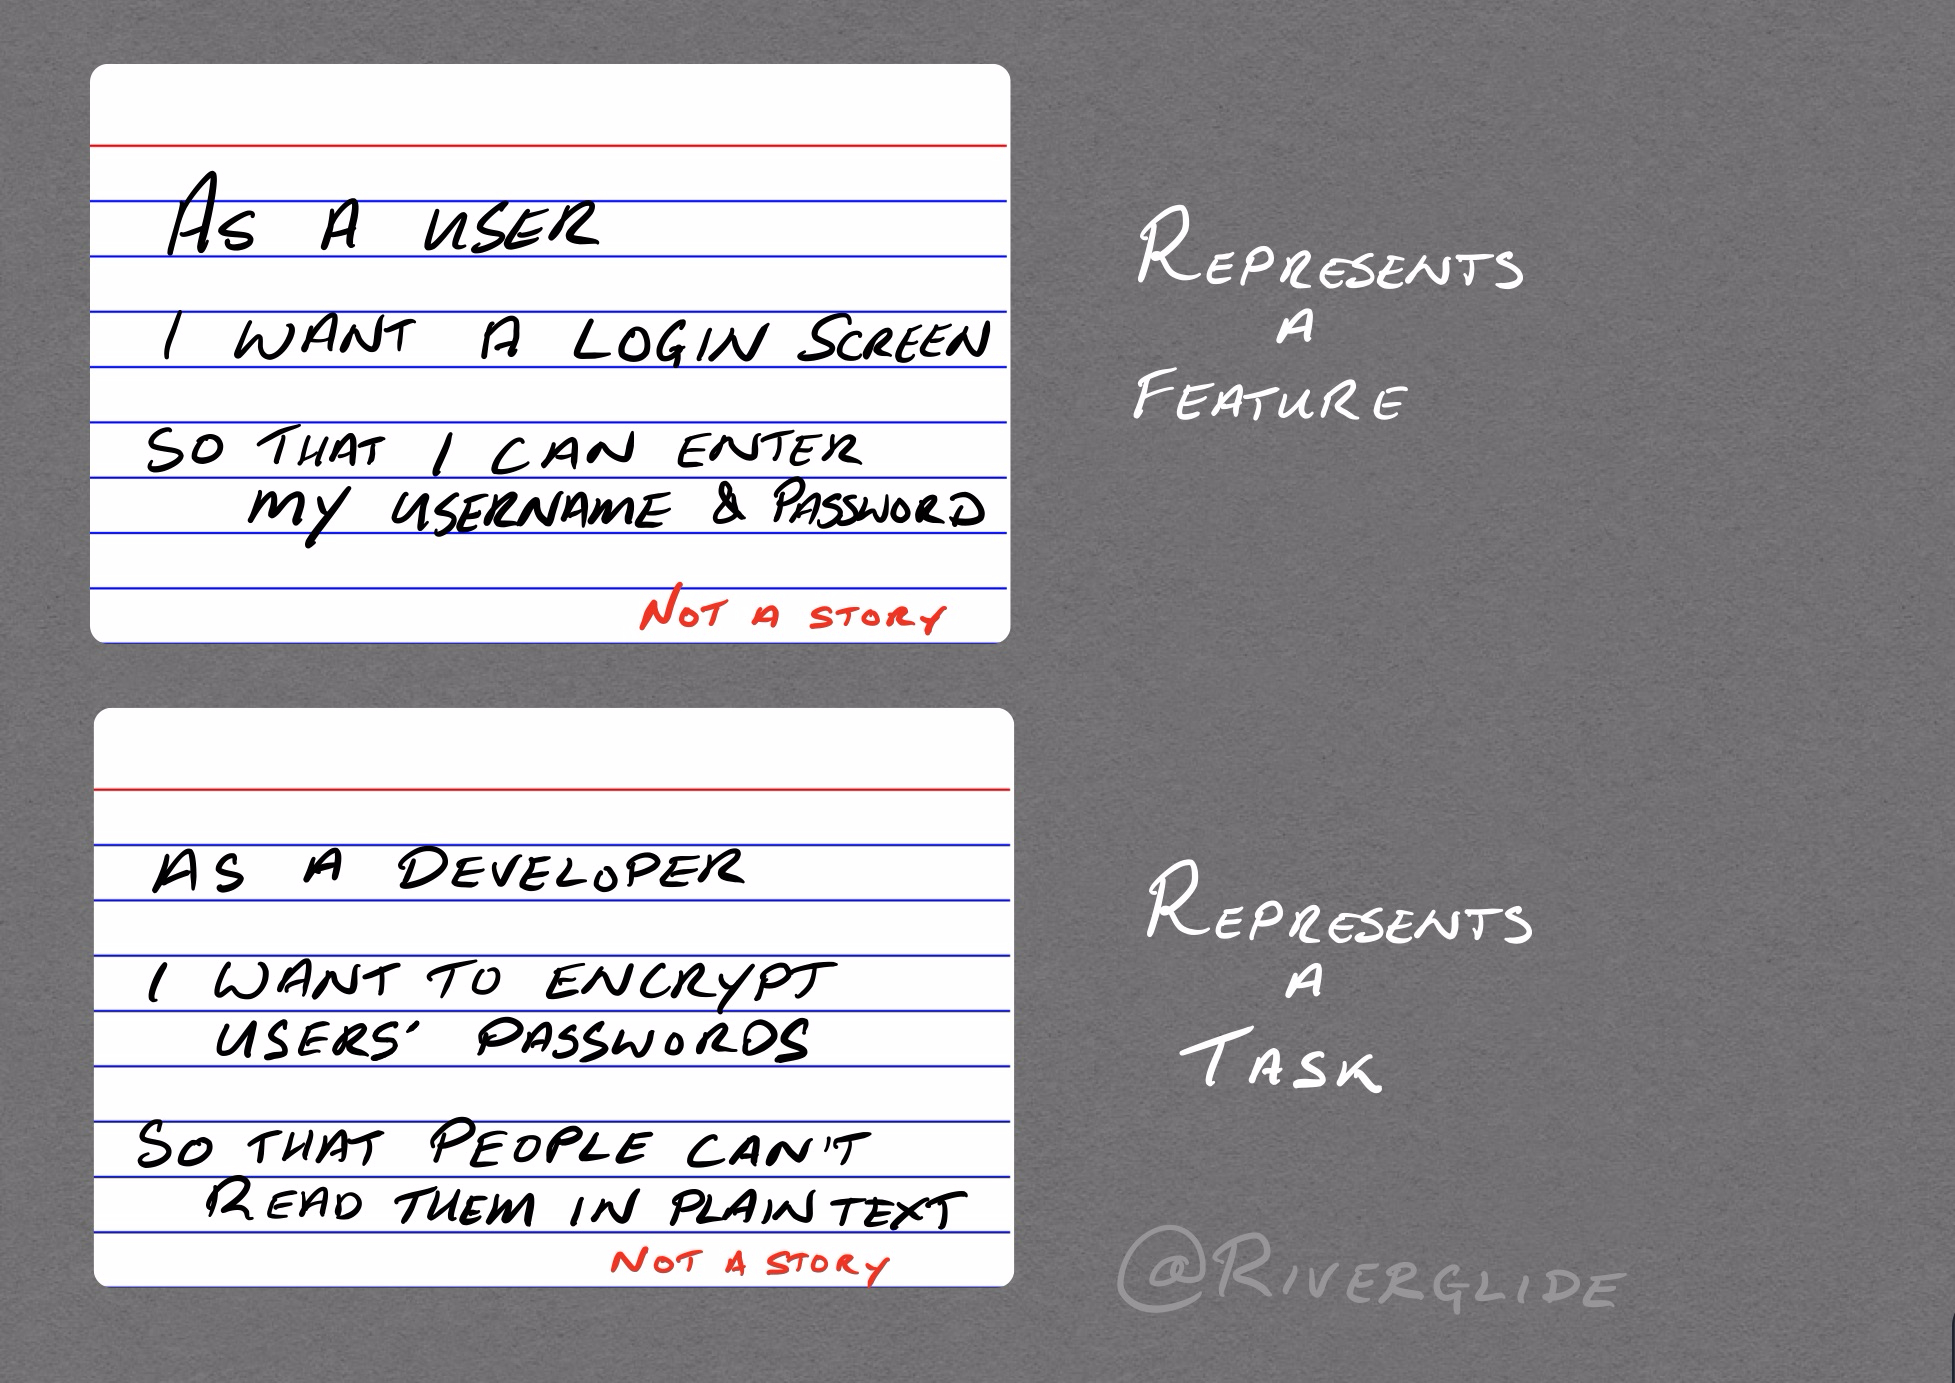 As A USER
I WANT A LOGIN SCREEN
SO THAT I CAN ENTER
MY USERNAME & PASSWORD
NOT A STORY
REPRESENTS
A
FEATURE
AS A DEVELOPER
I WANT TO ENCRYPT
USERS' PASSWORDS
SO THAT PEOPLE CAN'T
READ THEM IN PLAIN TEXT
NOT A STORY
REPRESENTS
A
TASK
@RIVERGLIDE